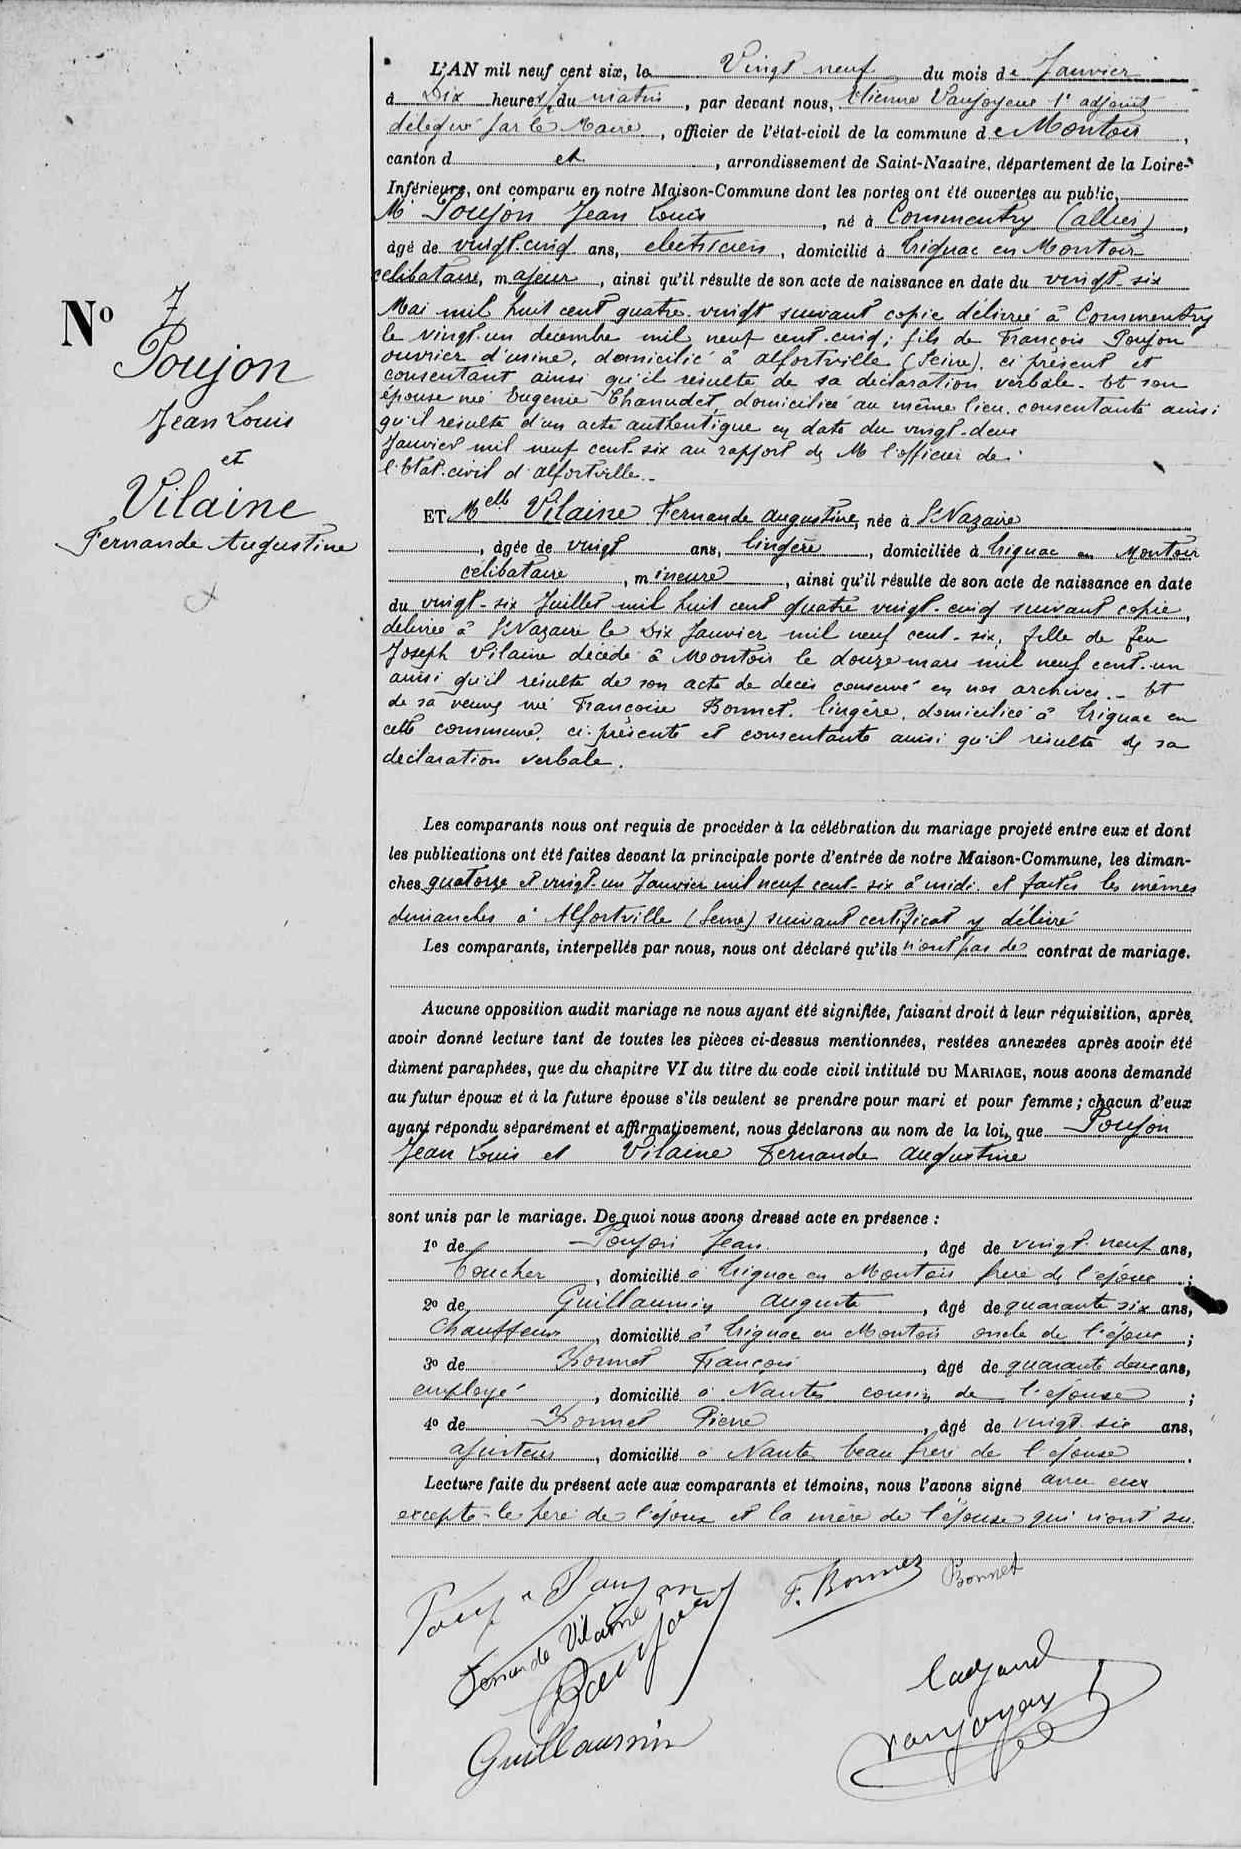 Nº 7
Poujon
Jean Louis
et
Vilaine
Fernande Augustine
L'AN mil neuf cent six, le Vingt neuf du mois de Janvier
à Dix heures du matin, par devant nous, Etienne Vanjoyeux 1er adjoint
délégué par le Maire, officier de l'état-civil de la commune de Montoir,
canton d et, arrondissement de Saint-Nazaire, département de la Loire-
Inférieure, ont comparu en notre Maison-Commune dont les portes ont été ouvertes au public,
Mr Poujon Jean Louis, né à Commentry (allier),
âgé de vingt-cinq ans, electricien, domicilié à Trignac en Montoir
celibataire, majeur, ainsi qu'il résulte de son acte de naissance en date du vingt-six
Mai mil huit cent quatre-vingt suivant copie délivrée à Commentry
le vingt-un decembre mil neuf cent-cinq; fils de François Poujon
ouvrier d'usine, domicilié à alfortville (Seine), ci présent et
consentant ainsi qu'il résulte de sa déclaration verbale. Et son
épouse née Eugenie Chanudet, domiciliée au même lieu, consentante ainsi
qu'il résulte d'un acte authentique en date du vingt-deux
Janvier mil neuf cent-six au rapport de M l'officier de
l'Etat-civil d'alfortville.-
ET Melle Vilaine Fernande augustine, née à St Nazaire
, âgée de vingt ans, lingère, domiciliée à Trignac en Montoir
celibataire, mineure, ainsi qu'il résulte de son acte de naissance en date
du vingt-six Juillet mil huit cent quatre vingt-cinq suivant copie,
délivrée à St Nazaire le Dix Janvier mil neuf cent-six, fille de feu
Joseph Vilaine décédé à Montoir le douze mars mil neuf cent-un
ainsi qu'il résulte de son acte de décès conservé en nos archives.- Et
de sa veuve née Françoise Bonnet, lingère, domiciliée à Trignac en
cette commune, ci-présente et consentante ainsi qu'il résulte de sa
déclaration verbale.
Les comparants nous ont requis de procéder à la célébration du mariage projeté entre eux et dont
les publications ont été faites devant la principale porte d'entrée de notre Maison-Commune, les diman-
ches quatorze et vingt-un Janvier mil neuf cent-six à midi et faites les mêmes
dimanches à Alfortville (Seine) suivant certificat y délivré
Les comparants, interpellés par nous, nous ont déclaré qu'ils n'ont pas de contrat de mariage.
Aucune opposition audit mariage ne nous ayant été signifiée, faisant droit à leur réquisition, après
avoir donné lecture tant de toutes les pièces ci-dessus mentionnées, restées annexées après avoir été
dûment paraphées, que du chapitre VI du titre du code civil intitulé DU MARIAGE, nous avons demandé
au futur époux et à la future épouse s'ils veulent se prendre pour mari et pour femme ; chacun d'eux
ayant répondu séparément et affirmativement, nous déclarons au nom de la loi, que Poujon
Jean Louis et Vilaine Fernande augustine
sont unis par le mariage. De quoi nous avons dressé acte en présence :
1º de Poujon Jean, âgé de vingt-neuf ans,
, domicilié à Trignac en Montoir frère de l'époux ;
2º de Guillaumin auguste, âgé de quarante six ans,
Chauffeur, domicilié à Trignac en Montoir oncle de l'époux ;
3º de Bonnet François, âgé de quarante deux ans,
employé, domicilié à Nantes cousin de l'épouse ;
4º de Bonnet Pierre, âgé de vingt-six ans,
ajusteur, domicilié à Nantes beau frère de l'épouse.
Lecture faite du présent acte aux comparants et témoins, nous l'avons signé avec eux
excepté le père de l'époux et la mère de l'épouse qui n'ont su.
Poujon
Fernande Vilaine
Poujon
Guillaumin
F. Bonnet
Bonnet
l'adjoint
Vanjoyeux